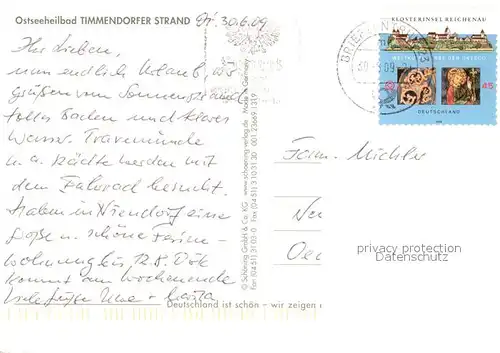 Ostseeheilbad TIMMENDORFER STRAND
30.6.09
Ihr Lieben,
nun endlich Urlaub, es
grüßen vom Sonnenstrand
tolles Baden und klares
Wasser. Travemünde
u. a. Städte werden mit
dem Fahrrad besucht.
Haben in Niendorf eine
große u. schöne Ferien-
wohnung bis
kommt am Wochenende
Viele Grüße +
© Schöning GmbH & Co. KG
www.schoening-verlag.de
Made in Germany
KLOSTERINSEL REICHENAU
WELTKULTURERBE DER UNESCO
45
DEUTSCHLAND
BRIEFZENTRUM
09
Fam.
privacy protection
Datenschutz
Deutschland ist schön – wir zeigen